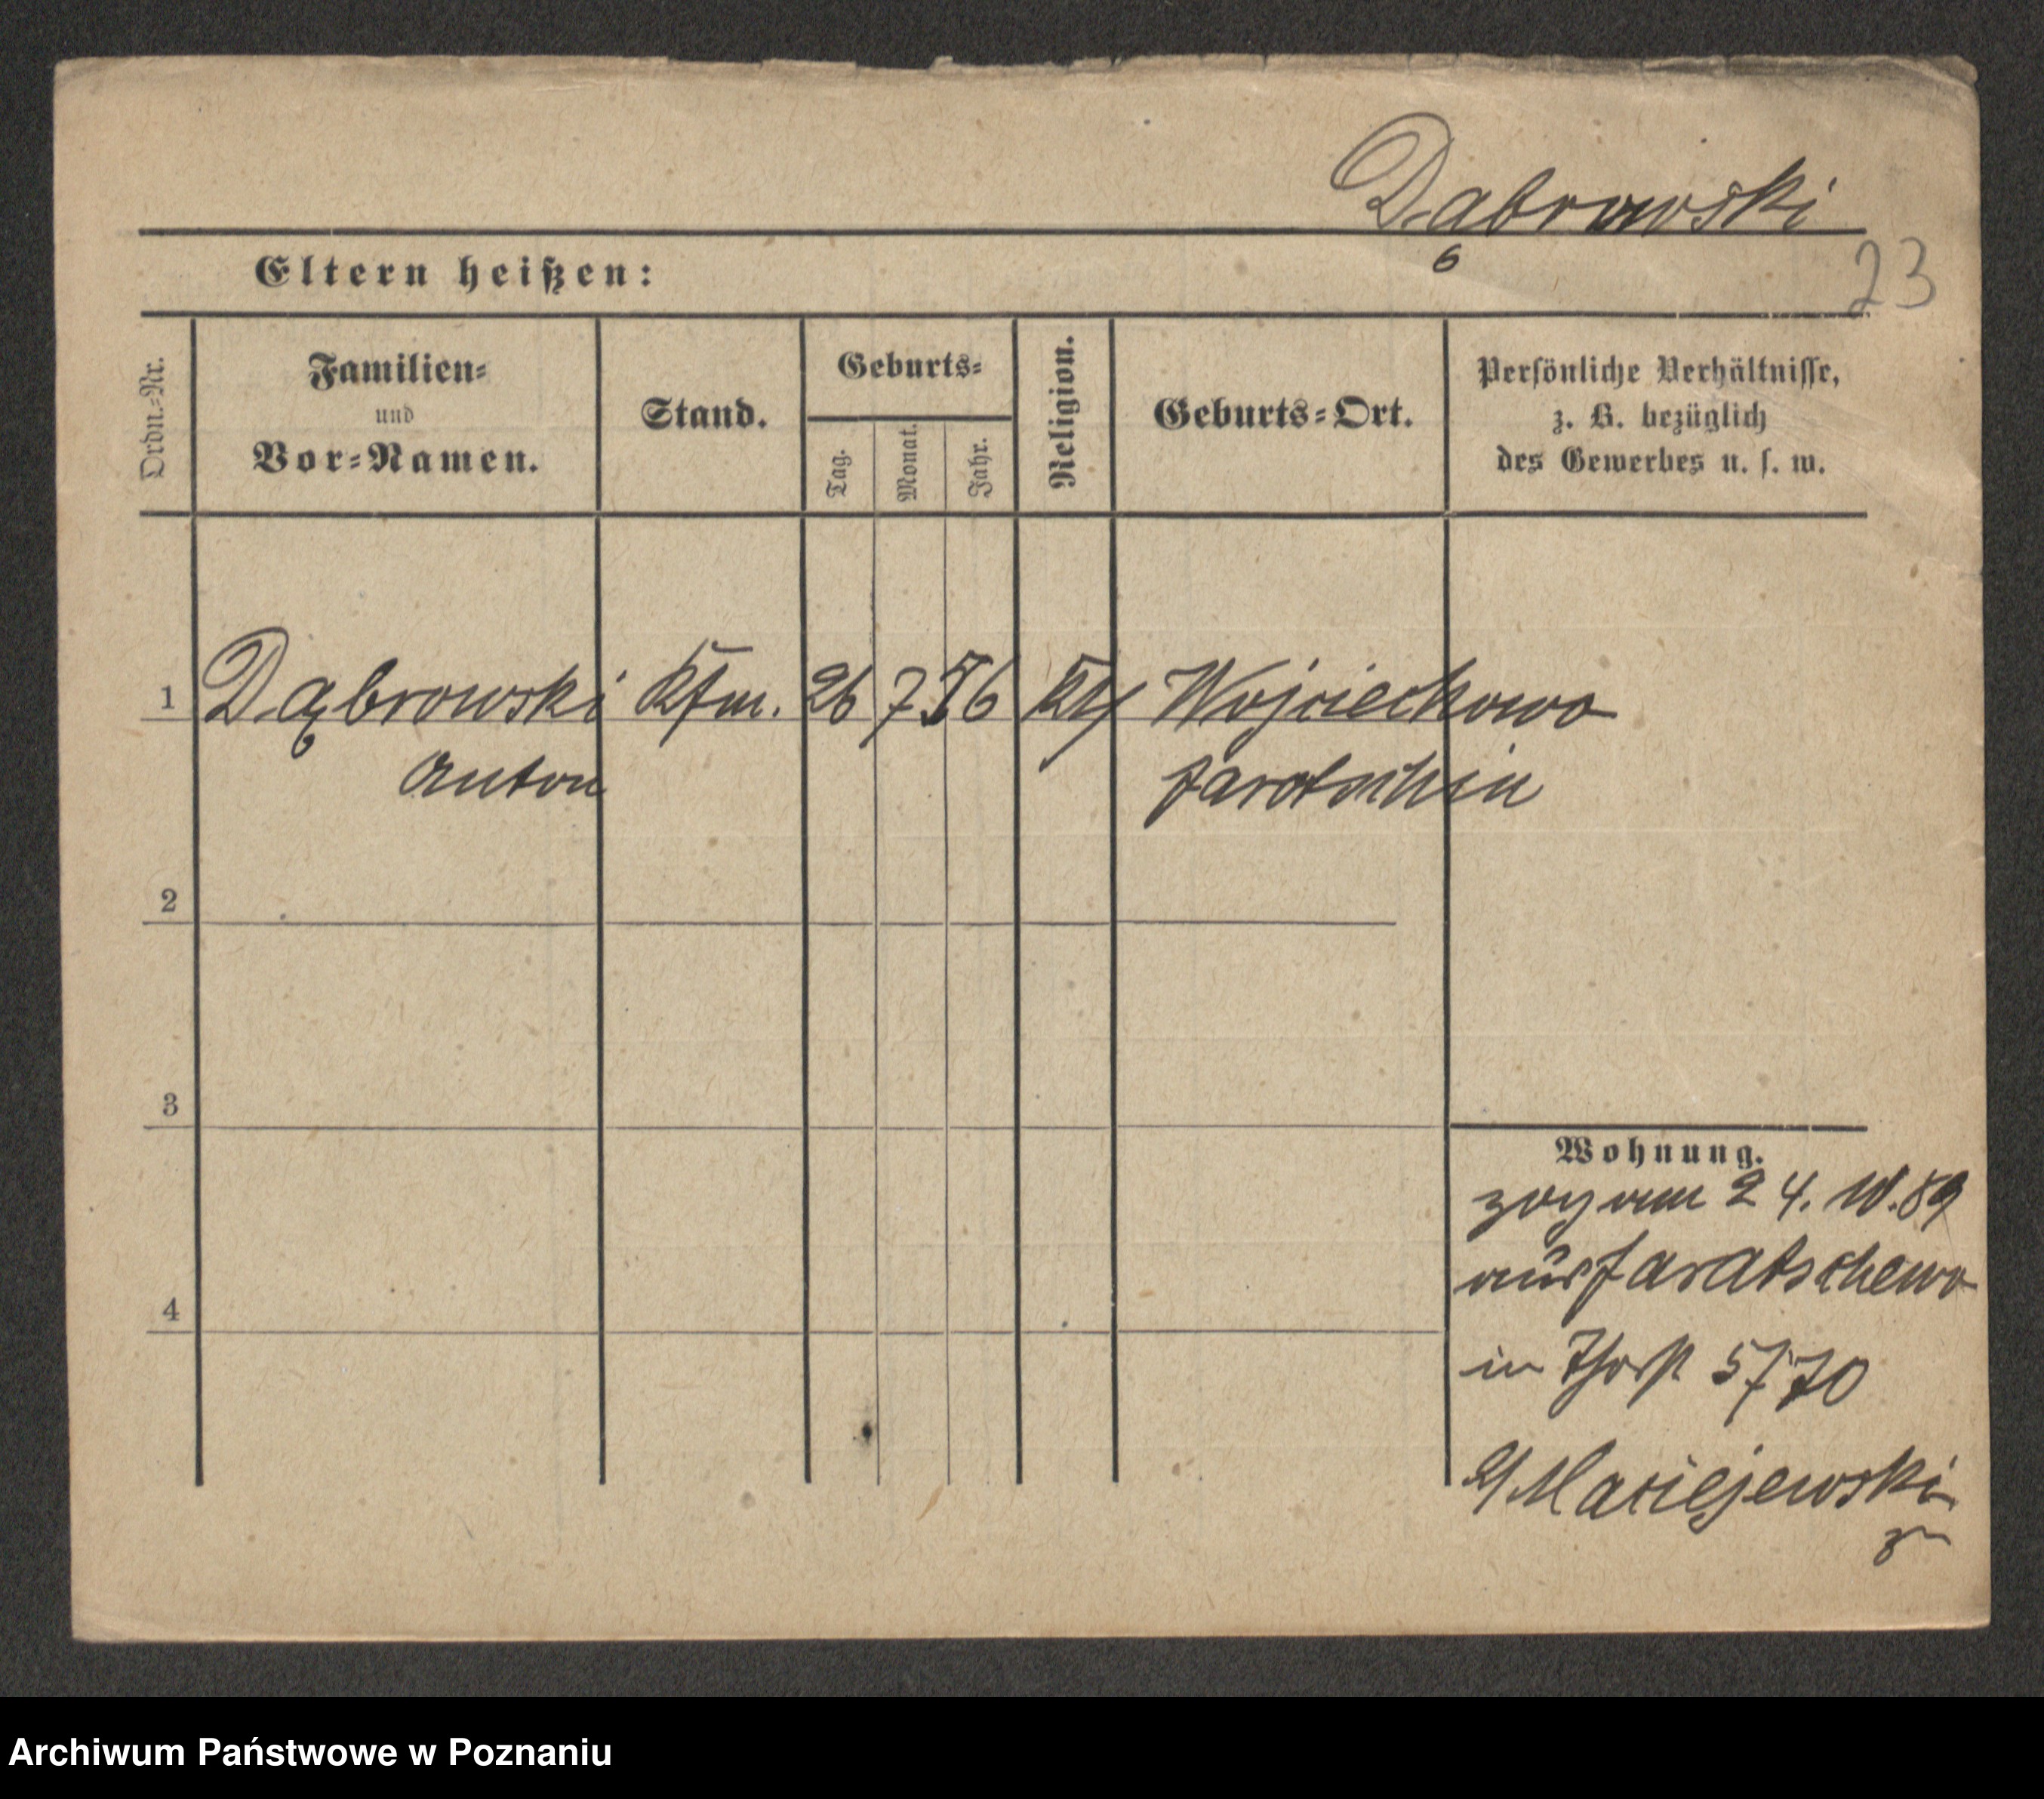 Dąbrowski
23
Eltern heißen:
Ordn.-Nr.
Familien-
und
Vor-Namen.
Stand.
Geburts-
Tag.
Monat.
Jahr.
Religion.
Geburts-Ort.
Persönliche Verhältnisse,
z. B. bezüglich
des Gewerbes u. s. w.
1 Dąbrowski Kfm. 26 7 76 Kth Wojciechowo
Anton Jarotschin
2
3
4
Wohnung.
zog am 24. 10. 89
aus Jaratschewo
in 5/70
Maciejewski
Archiwum Państwowe w Poznaniu